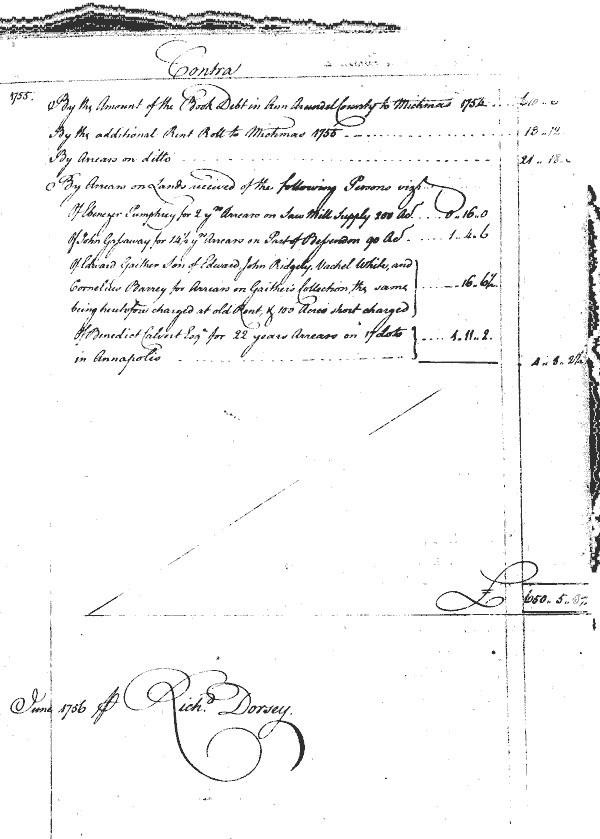 Contra
1755. By the Amount of the Book Debt in Ann Arundel County to Micħmas 1754
By the additional Rent Roll to Micħmas 1755
By Arrears on ditto
By Arrears on Lands received of the following Persons vizt
Of Ebenezer Pumphrey for 2 yrs Arrears on Saw Mill Supply 200 Ads 0..16.0
Of John Gassaway for 14½ yrs Arrears on Part of 90 Ads 1..4..6
Of Edward Gaither Son of Edward, John Ridgely, Vachel White, and
Cornelius Barrey for Arrears on Gaither's Collection, the same 16..6½
being heretofore charged at old Rent, & 100 Acres short charged
Of Benedict Calvert Esqr for 22 years Arrears on 17 lots 4..11..2.
in Annapolis
£
June 1756 Richd Dorsey.